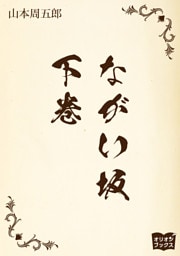 山本周五郎
ながい坂
下巻
オリオン
ブックス